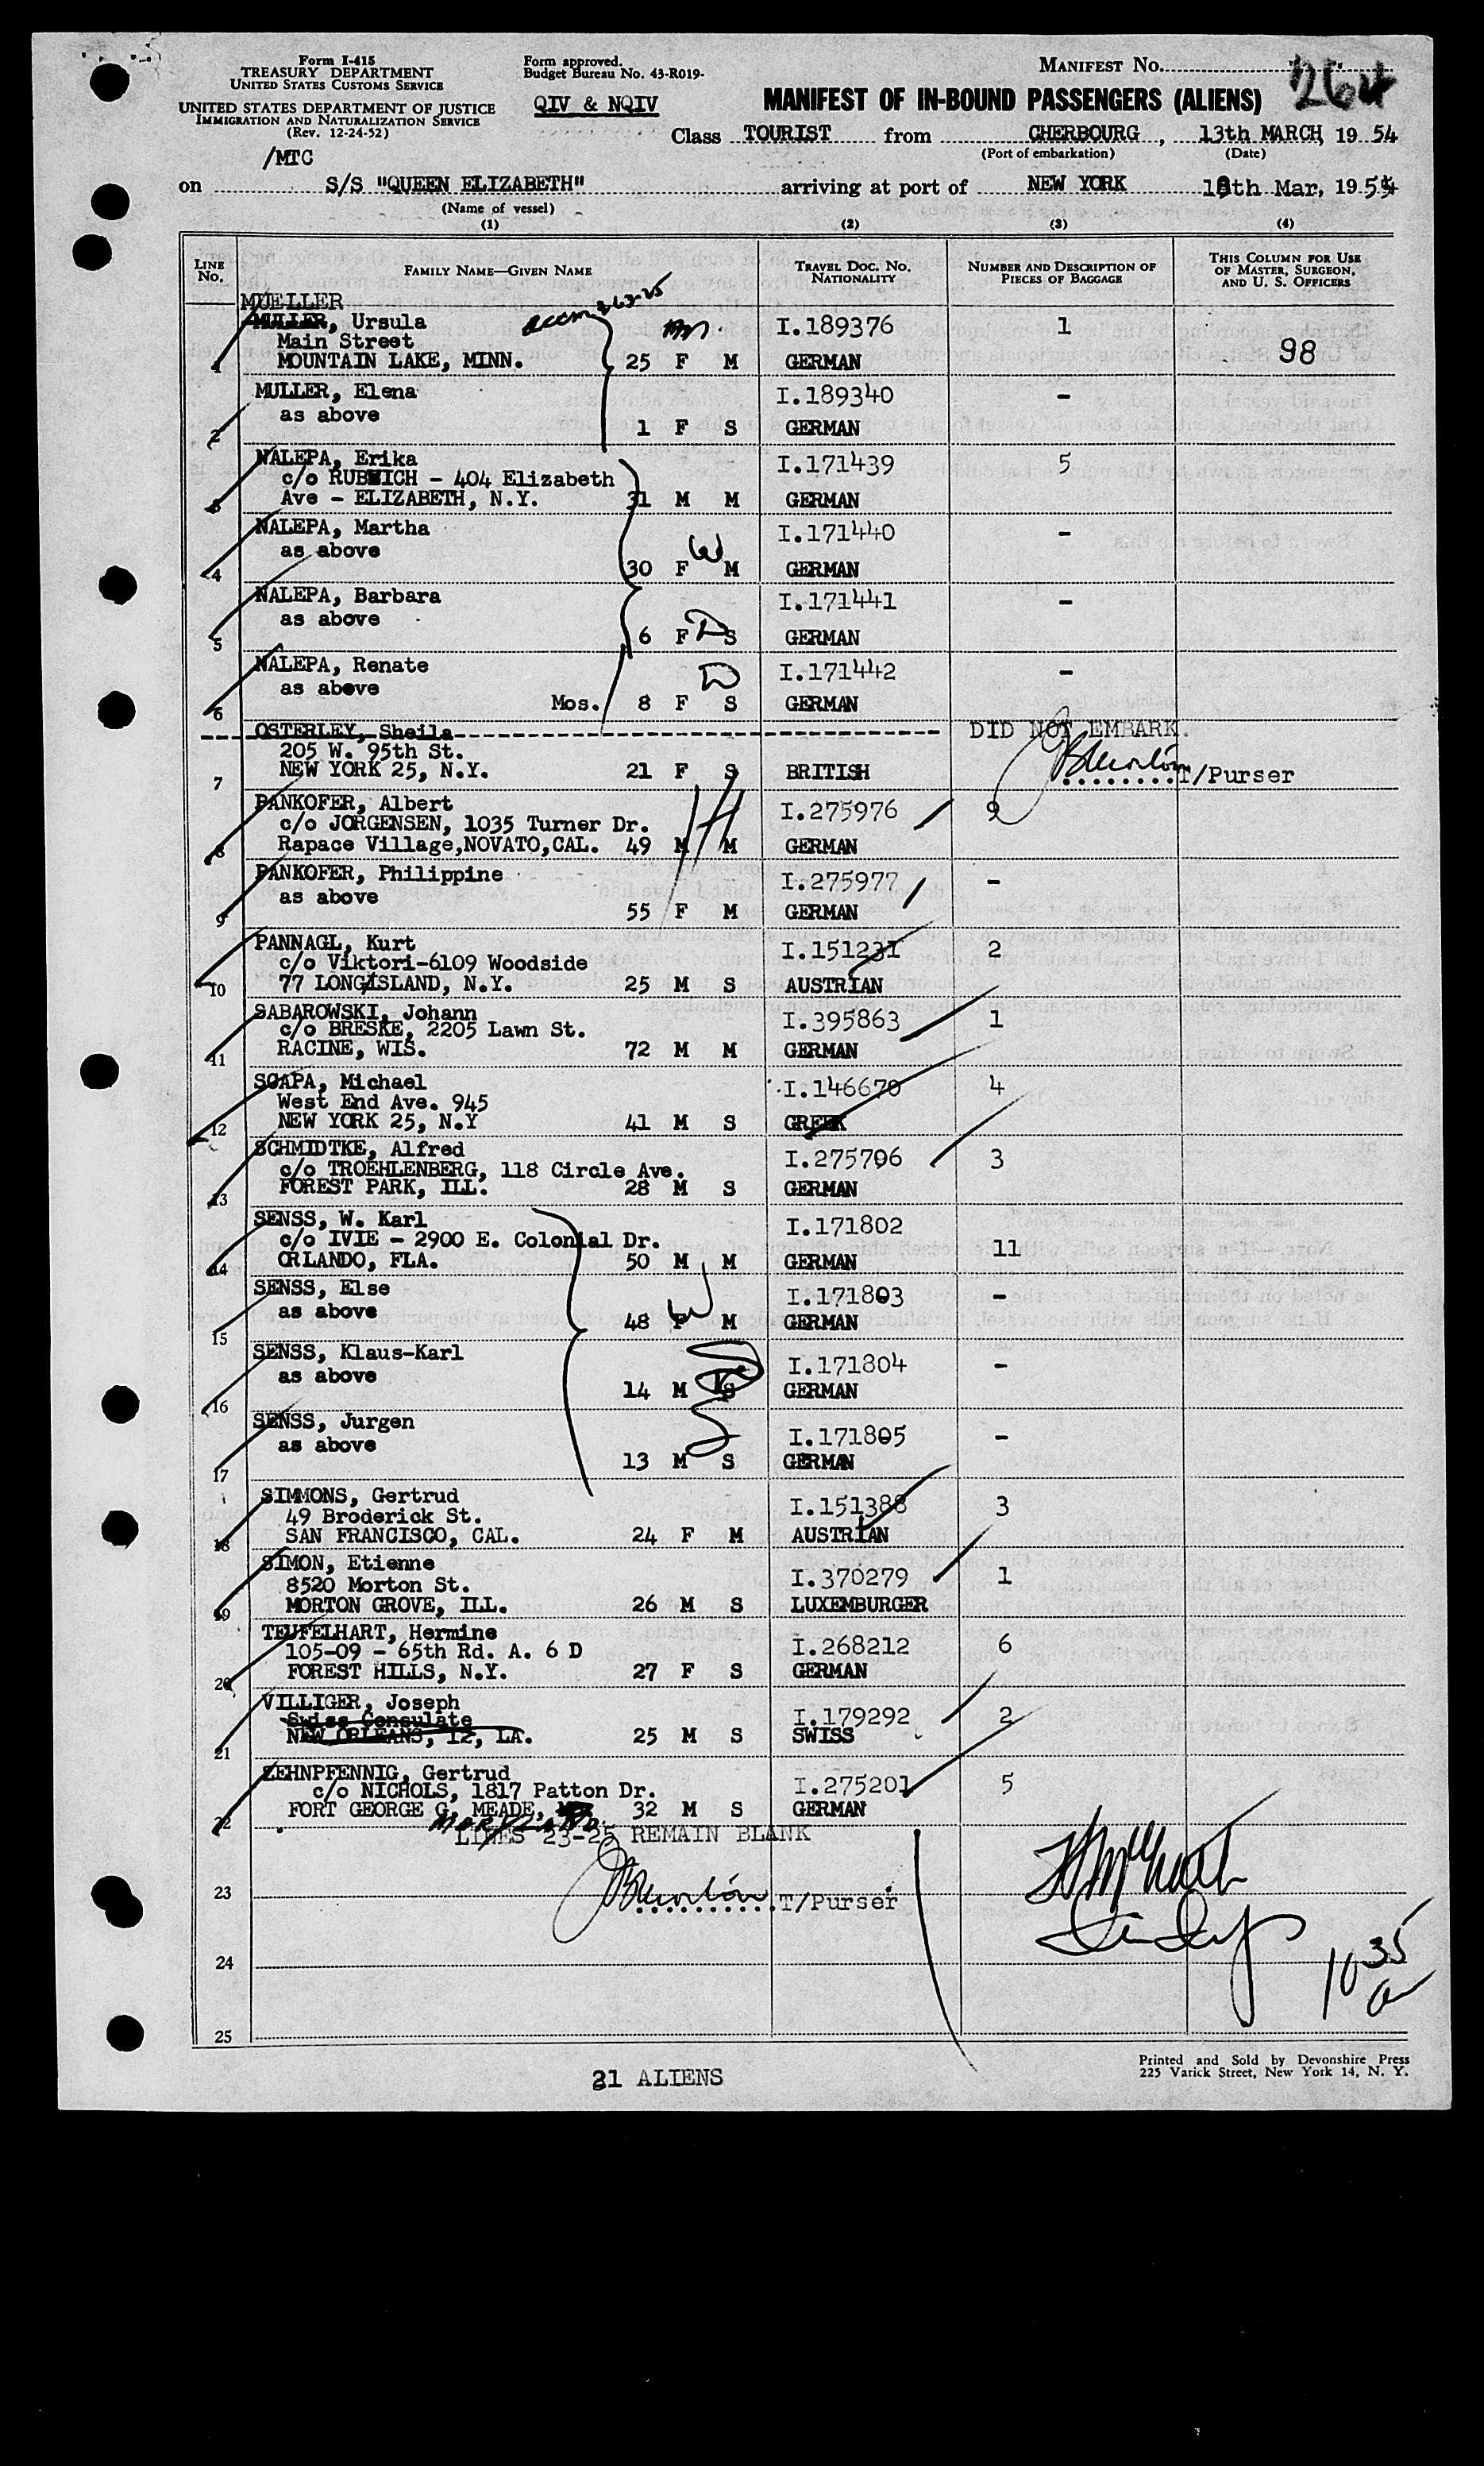 Form I-415
TREASURY DEPARTMENT
UNITED STATES CUSTOMS SERVICE
UNITED STATES DEPARTMENT OF JUSTICE
IMMIGRATION AND NATURALIZATION SERVICE
(Rev. 12-24-52)
/MTC
Form approved.
Budget Bureau No. 43-R019-
QIV & NQIV
MANIFEST NO. 264
MANIFEST OF IN-BOUND PASSENGERS (ALIENS)
Class TOURIST from CHERBOURG, 13th MARCH, 1954
(Port of embarkation) (Date)
on S/S "QUEEN ELIZABETH" arriving at port of NEW YORK Mar, 1954
(Name of vessel)
(1) (2) (3) (4)
LINE NO. FAMILY NAME—GIVEN NAME TRAVEL DOC. NO. NATIONALITY NUMBER AND DESCRIPTION OF PIECES OF BAGGAGE THIS COLUMN FOR USE OF MASTER, SURGEON, AND U. S. OFFICERS
MUELLER
MULLER, Ursula I.189376 1
Main Street
1 MOUNTAIN LAKE, MINN. 25 F M GERMAN 98
MULLER, Elena I.189340 -
as above
2 1 F S GERMAN
NALEPA, Erika I.171439 5
c/o RUBWICH - 404 Elizabeth
3 Ave - ELIZABETH, N.Y. 31 M M GERMAN
NALEPA, Martha I.171440 -
as above
4 30 F W M GERMAN
NALEPA, Barbara I.171441 -
as above
5 6 F D S GERMAN
NALEPA, Renate I.171442 -
as above D
6 Mos. 8 F S GERMAN
OSTERLEY, Sheila DID NOT EMBARK.
205 W. 95th St.
7 NEW YORK 25, N.Y. 21 F S BRITISH T/Purser
PANKOFER, Albert I.275976 9
c/o JORGENSEN, 1035 Turner Dr.
8 Rapace Village,NOVATO,CAL. 49 M M GERMAN
PANKOFER, Philippine I.275977 -
as above
9 55 F M GERMAN
PANNAGL, Kurt I.151231 2
c/o Viktori-6109 Woodside
10 77 LONG ISLAND, N.Y. 25 M S AUSTRIAN
SABAROWSKI, Johann I.395863 1
c/o BRESKE, 2205 Lawn St.
11 RACINE, WIS. 72 M M GERMAN
SCAPA, Michael I.146670 4
West End Ave. 945
12 NEW YORK 25, N.Y 41 M S GREEK
SCHMIDTKE, Alfred I.275796 3
c/o TROEHLENBERG, 118 Circle Ave.
13 FOREST PARK, ILL. 28 M S GERMAN
SENSS, W. Karl I.171802 11
c/o IVIE - 2900 E. Colonial Dr.
14 ORLANDO, FLA. 50 M M GERMAN
SENSS, Else I.171803 -
as above W
15 48 F M GERMAN
SENSS, Klaus-Karl I.171804 -
as above
16 14 M S GERMAN
SENSS, Jurgen I.171805 -
as above
17 13 M S GERMAN
SIMMONS, Gertrud I.151388 3
49 Broderick St.
18 SAN FRANCISCO, CAL. 24 F M AUSTRIAN
SIMON, Etienne I.370279 1
8520 Morton St.
19 MORTON GROVE, ILL. 26 M S LUXEMBURGER
TEUFELHART, Hermine I.268212 6
105-09 - 65th Rd. A. 6 D
20 FOREST HILLS, N.Y. 27 F S GERMAN
VILLIGER, Joseph I.179292 2
Swiss Consulate
21 NEW ORLEANS, 12, LA. 25 M S SWISS
ZEHNPFENNIG, Gertrud I.275201 5
c/o NICHOLS, 1817 Patton Dr.
22 FORT GEORGE G. MEADE, 32 M S GERMAN
MARYLAND.
LINES 23-25 REMAIN BLANK
23 T/Purser
24
10 35 a
25
21 ALIENS
Printed and Sold by Devonshire Press
225 Varick Street, New York 14, N. Y.